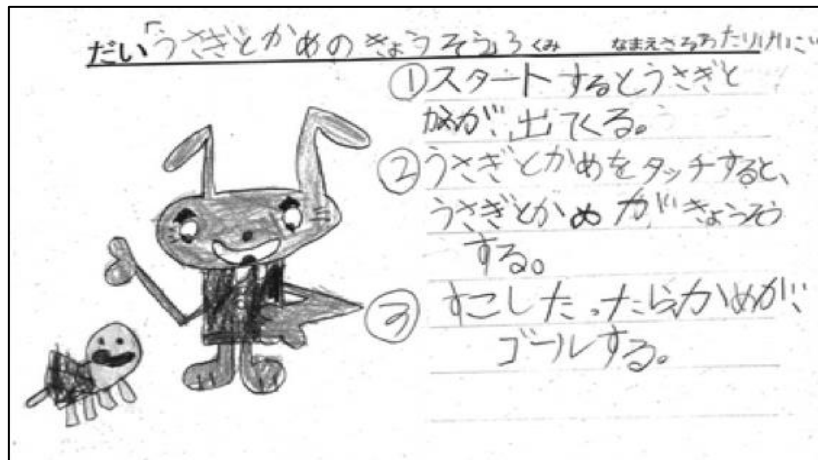 だい「うさぎとかめのきょうそう」ろくみ なまえ
①スタートするとうさぎと
かめが、出てくる。
②うさぎとかめをタッチすると、
うさぎとかめがきょうそう
する。
③すこしたったらかめが、
ゴールする。